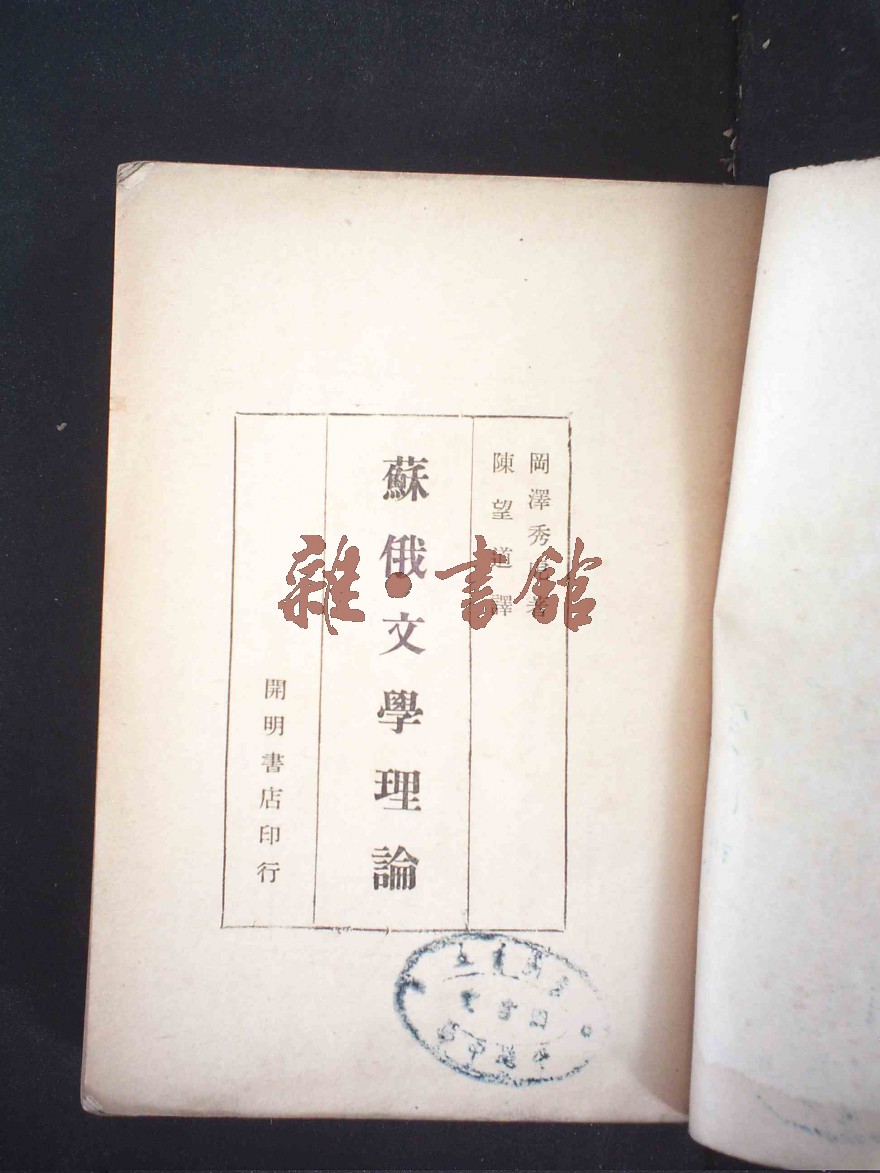 岡澤秀虎著
陳望道譯
蘇俄文學理論
開明書店印行
雜·書館